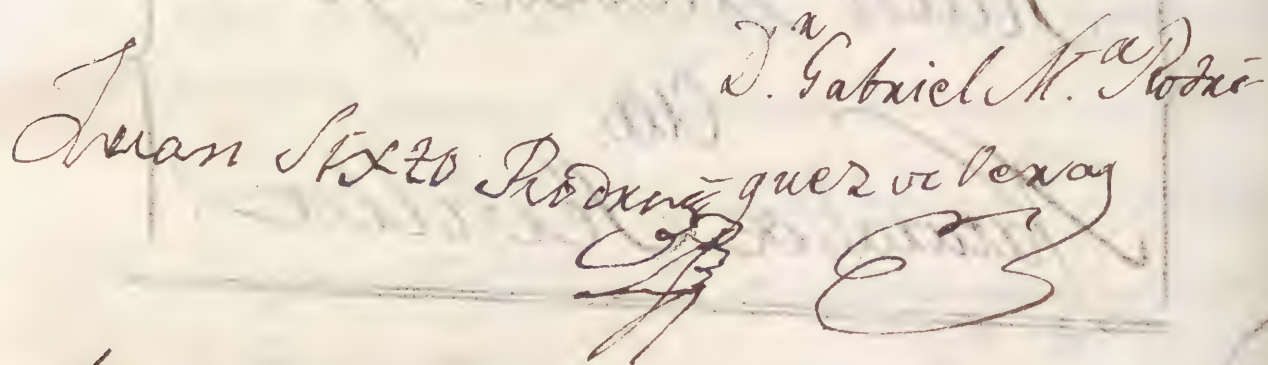 D.ⁿ Gabriel M.ª Rodri-
Juan Sixto Rodri
guez de